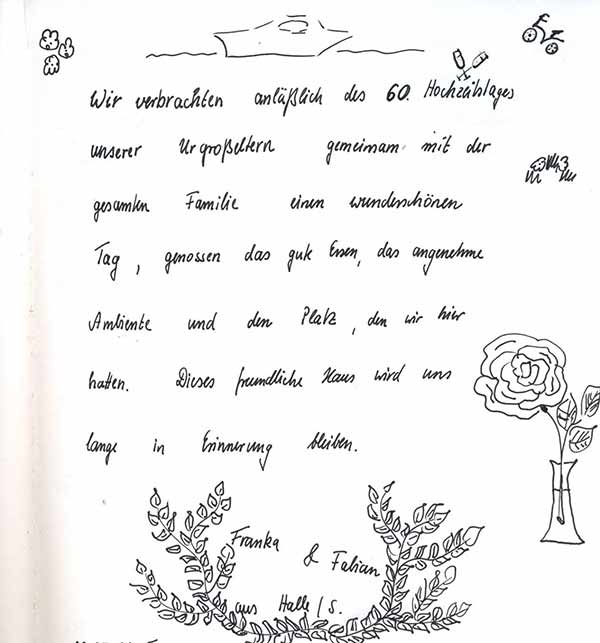 Wir verbrachten anläßlich des 60. Hochzeitstages
unserer Urgroßeltern gemeinsam mit der
gesamten Familie einen wunderschönen
Tag, genossen das gute Essen, das angenehme
Ambiente und den Platz, den wir hier
hatten. Dieses freundliche Haus wird uns
lange in Erinnerung bleiben.
Franka
& Fabian
aus Halle/S.